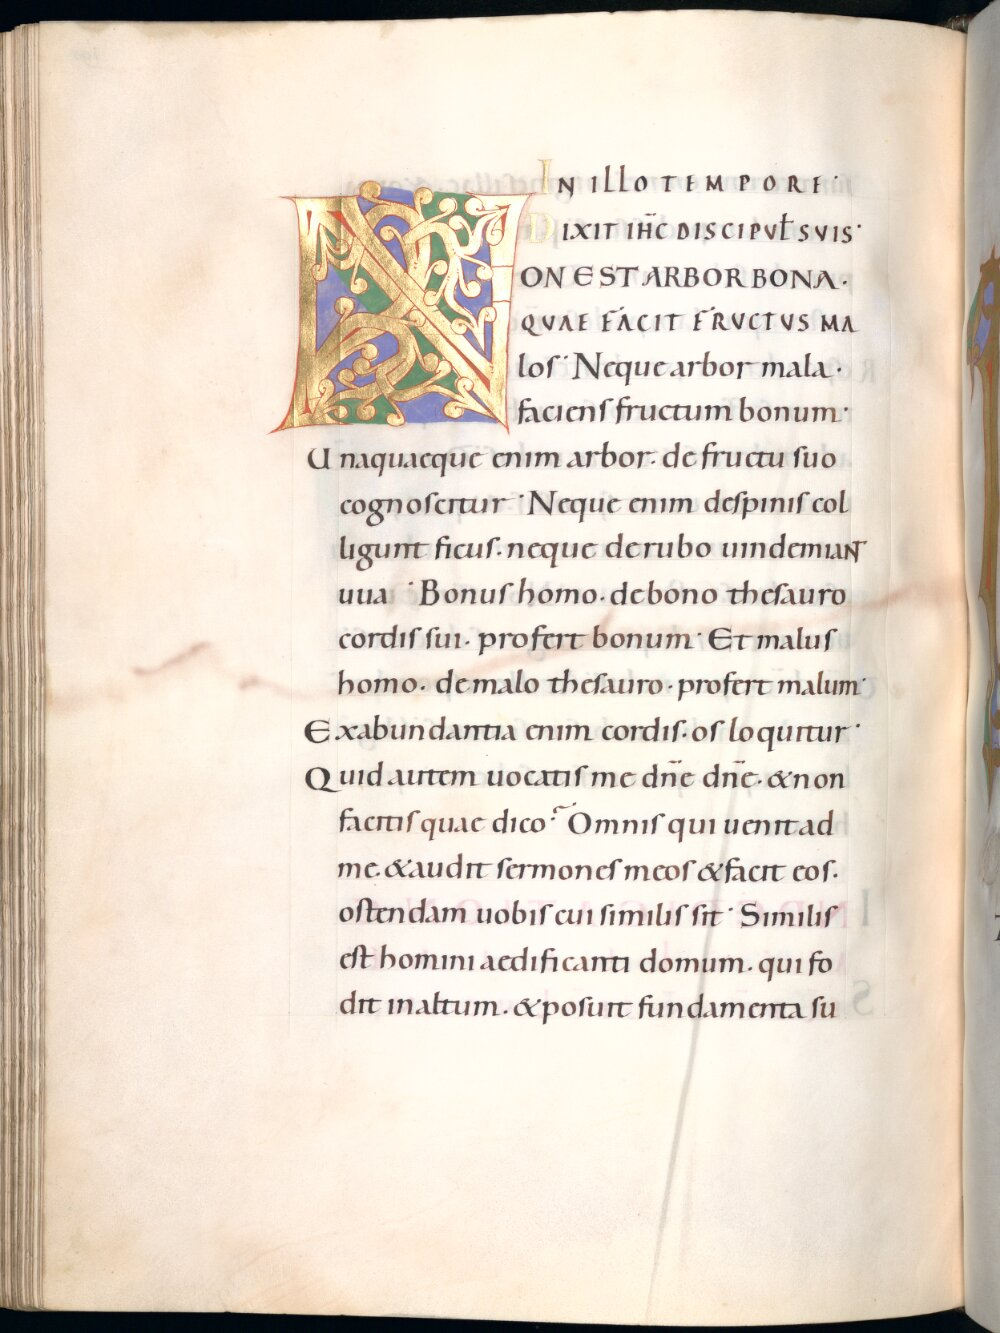 IN ILLO TEMPORE·
DIXIT IHC̄ DISCIPVLꝉ SVIS·
NON EST ARBOR BONA·
QVAE FACIT FRVCTVS MA
los· Neque arbor mala·
faciens fructum bonum·
Unaquaeque enim arbor· de fructu suo
cognoscitur· Neque enim despinis col
ligunt ficus· neque derubo uindemiant
uua· Bonus homo· debono thesauro
cordis sui· profert bonum· Et malus
homo· de malo thesauro· profert malum·
Exabundantia enim cordis· os loquitur·
Quid autem uocatis me dn̄e dn̄e· & non
facitis quae dico? Omnis qui uenit ad
me· & audit sermones meos & facit eos·
ostendam uobis cui similis sit· Similis
est homini aedificanti domum· qui fo
dit in altum· & posuit fundamenta su